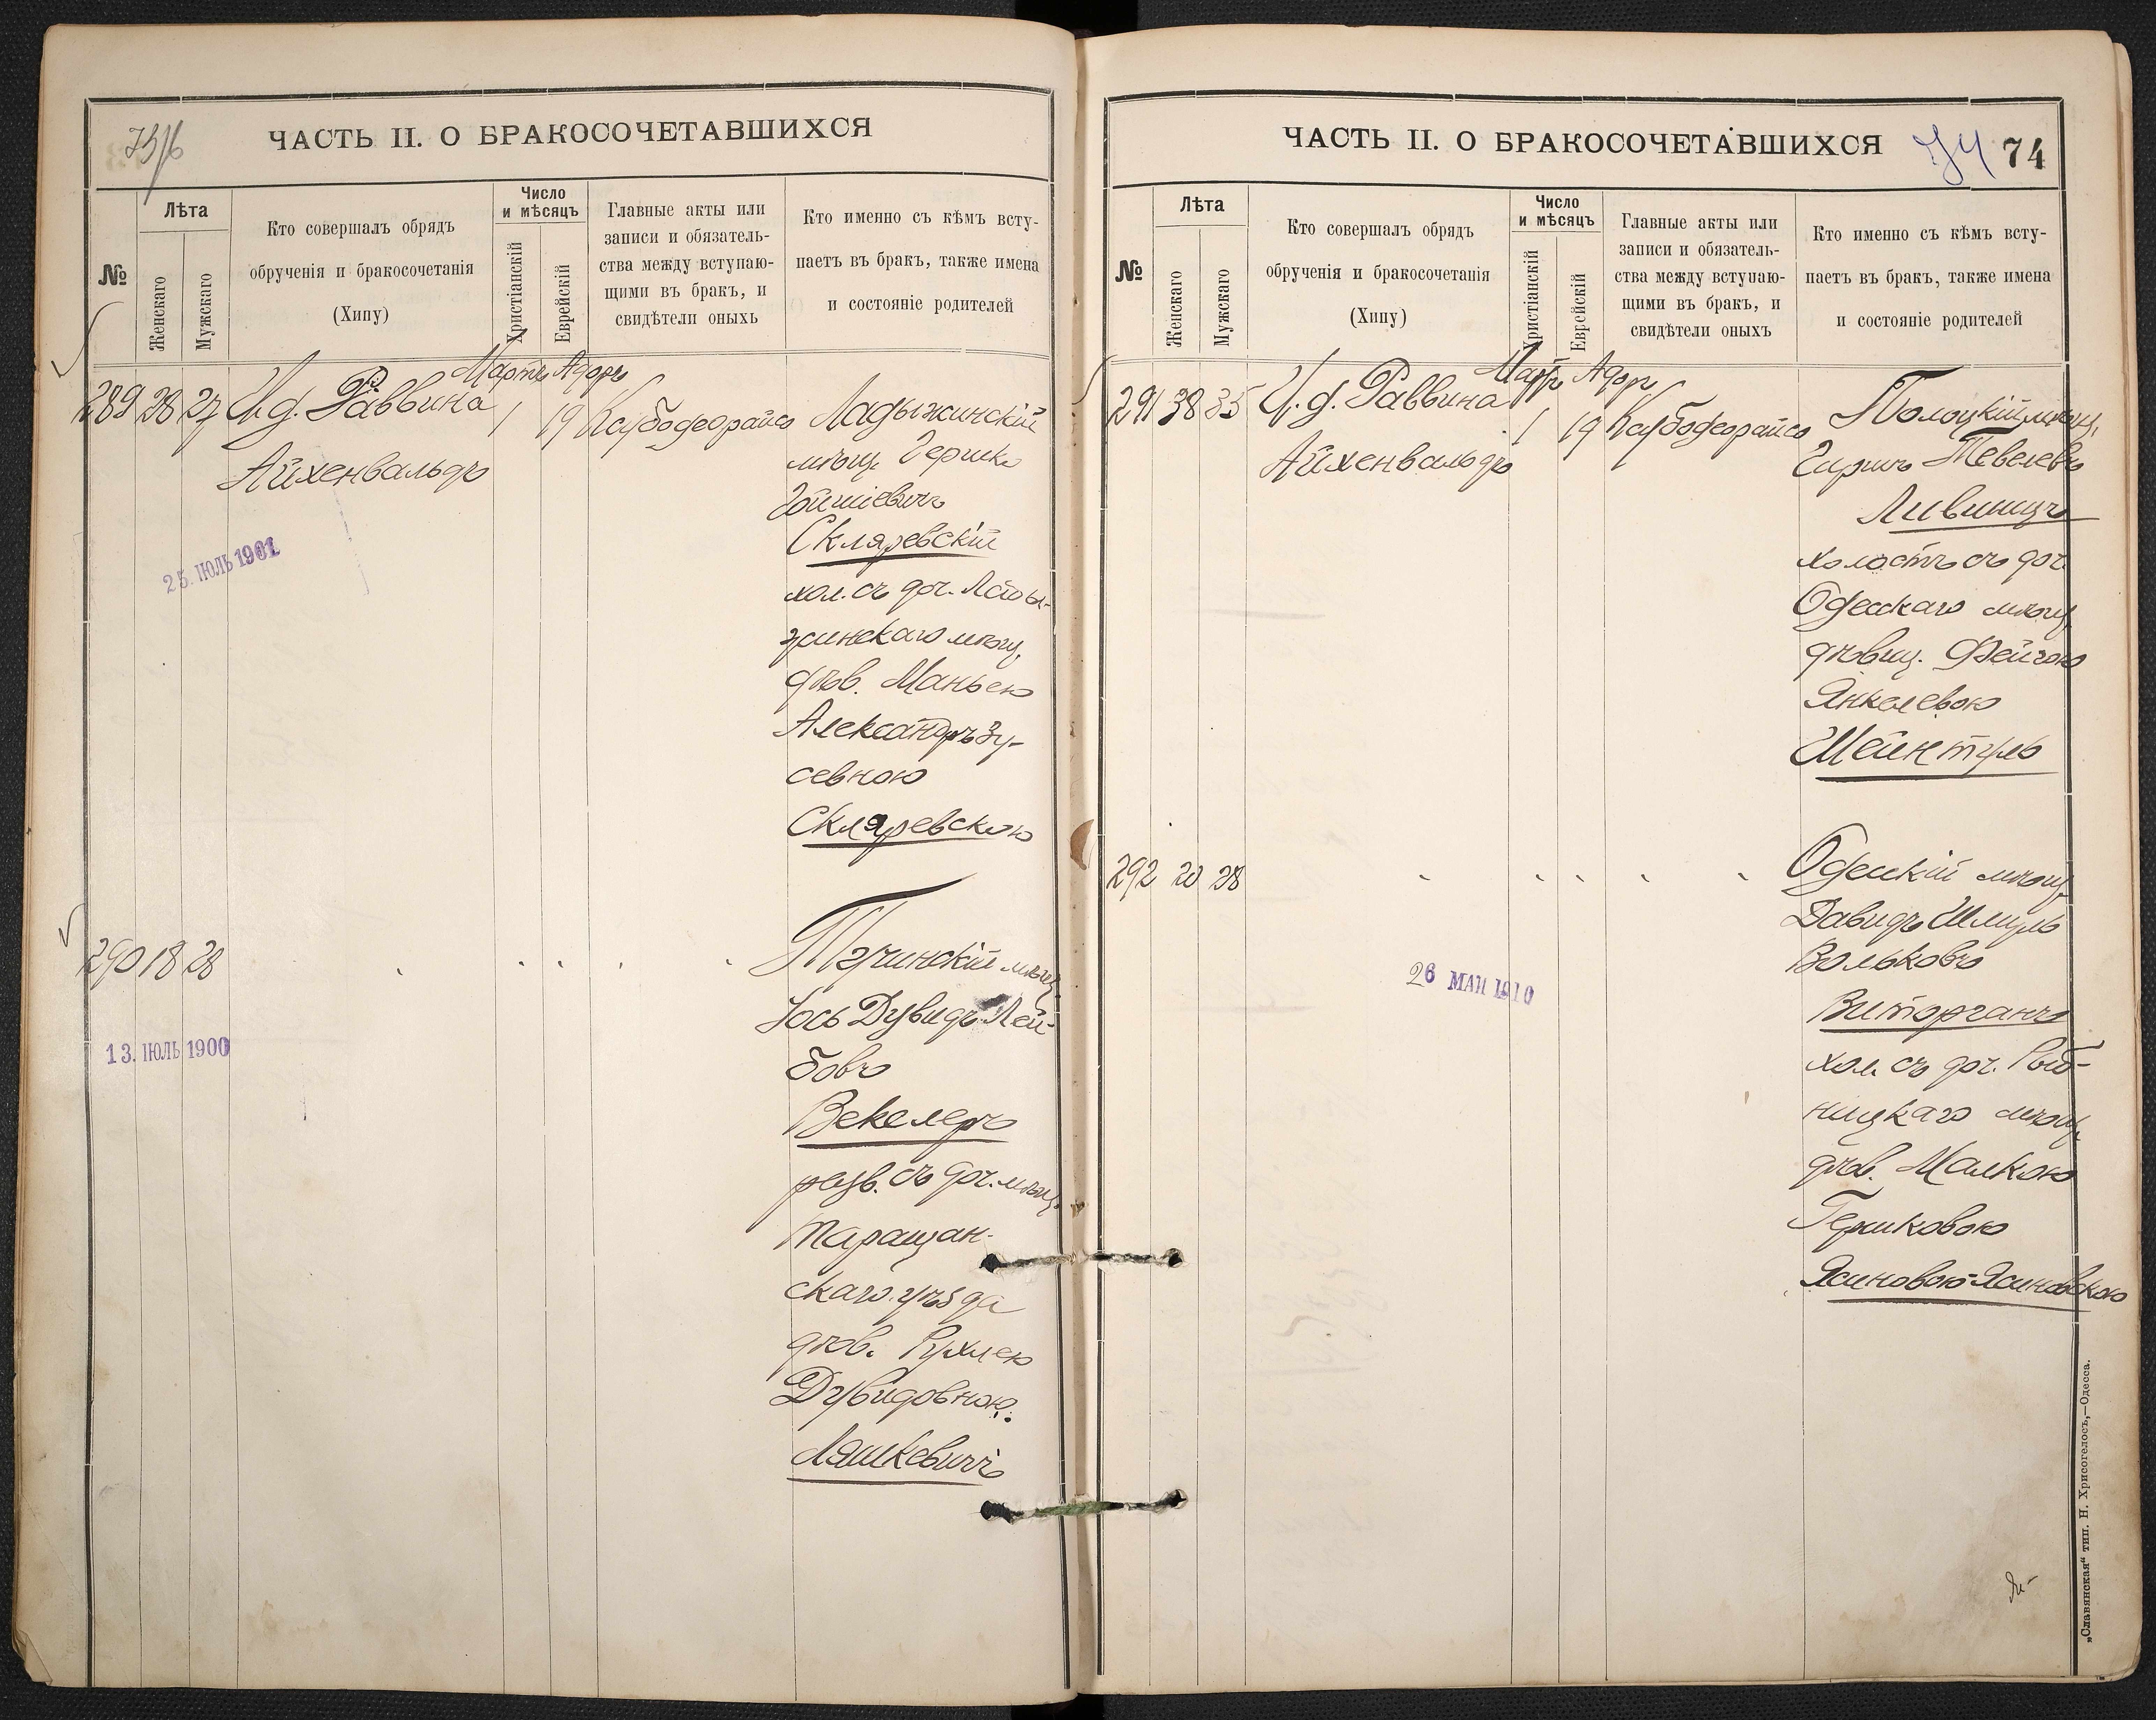 73/б
ЧАСТЬ II. О БРАКОСОЧЕТАВШИХСЯ
№
Лѣта
Женскаго
Мужскаго
Кто совершалъ обрядъ
обрученія и бракосочетанія
(Хипу)
Число
и мѣсяцъ
Христіанскій
Еврейскій
Главные акты или
записи и обязатель-
ства между вступаю-
щими въ бракъ, и
свидѣтели оныхъ
Кто именно съ кѣмъ всту-
паетъ въ бракъ, также имена
и состояніе родителей
Мартъ Адоръ
289 28 27 И. д. Раввина 1 19 Ладыжинскій
Айхенвальдъ
мѣщ. Гершко
Скляревскій
хол. съ доч. Лады-
жинскаго мѣщ.
дѣв. Маньею
Александръ Зу-
севною
Скляревскою
25. ІЮЛЬ 1901
290 18 28
мѣщ.
Іось Дувидъ Лей-
бовъ
Векслеръ
разв. съ доч. мѣщ.
Таращан-
скаго уѣзда
дѣв. Рухлею
Дувидовною
Ляшкевичъ
13. ІЮЛЬ 1900
ЧАСТЬ II. О БРАКОСОЧЕТАВШИХСЯ
74 74
№
Лѣта
Женскаго
Мужскаго
Кто совершалъ обрядъ
обрученія и бракосочетанія
(Хипу)
Число
и мѣсяцъ
Христіанскій
Еврейскій
Главные акты или
записи и обязатель-
ства между вступаю-
щими въ бракъ, и
свидѣтели оныхъ
Кто именно съ кѣмъ всту-
паетъ въ бракъ, также имена
и состояніе родителей
Мартъ Адоръ
291 38 35 И. д. Раввина 1 19 Полоцкій мѣщ.
Айхенвальдъ
Гиршъ Тевелевъ
Лившицъ
холостъ съ доч.
Одесскаго мѣщ.
дѣвиц. Фейгою
Янкелевою
Шейнтуль
292 20 28
Одесскій мѣщ.
Давидъ Шмуль
Вольковъ
Виторганъ
хол. съ доч. Рыб-
ницкаго мѣщ.
дѣв. Малкою
Гершковою
Ясиновою-Ясиновскою
26 МАЙ 1910
„Славянская“ тип. Н. Хрисогелосъ,—Одесса.